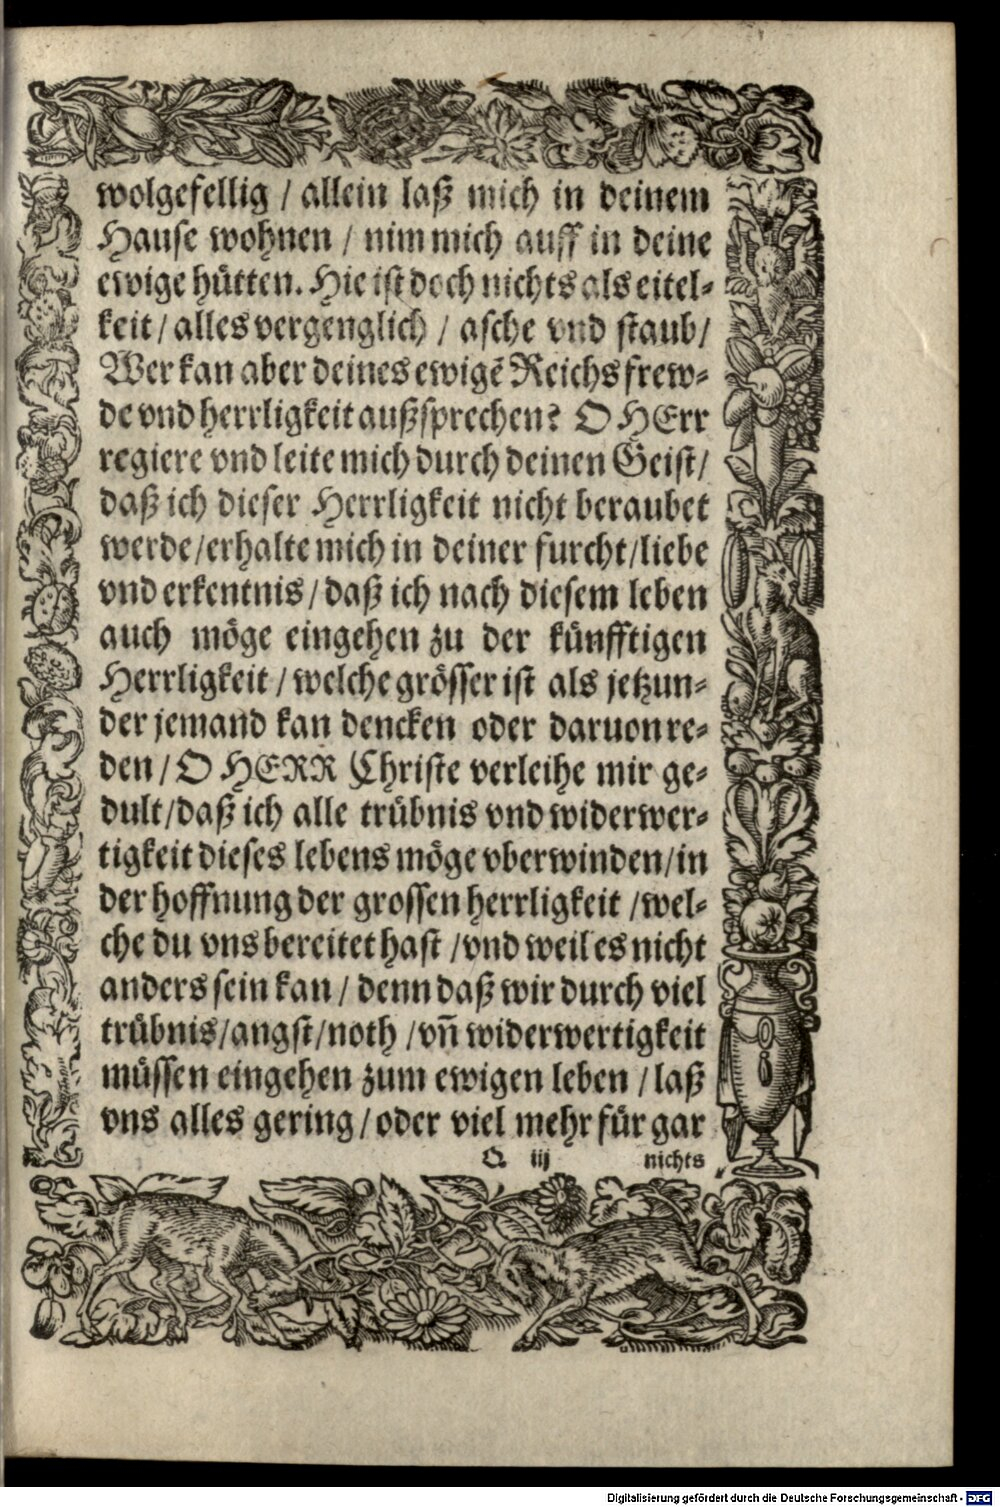 wolgefellig / allein laß mich in deinem
Hause wohnen / nim mich auff in deine
ewige hütten. Hie ist doch nichts als eitel-
keit / alles vergenglich / asche vnd staub /
Wer kan aber deines ewigẽ Reichs frew-
de vnd herrligkeit außsprechen? O HErr
regiere vnd leite mich durch deinen Geist /
daß ich dieser Herrligkeit nicht beraubet
werde / erhalte mich in deiner furcht / liebe
vnd erkentnis / daß ich nach diesem leben
auch möge eingehen zu der künfftigen
Herrligkeit / welche grösser ist als jetzun-
der jemand kan dencken oder daruon re-
den / O HERR Christe verleihe mir ge-
dult / daß ich alle trübnis vnd widerwer-
tigkeit dieses lebens möge vberwinden / in
der hoffnung der grossen herrligkeit / wel-
che du vns bereitet hast / vnd weil es nicht
anders sein kan / denn daß wir durch viel
trübnis / angst / noth / vn̄ widerwertigkeit
müssen eingehen zum ewigen leben / laß
vns alles gering / oder viel mehr für gar
Q iij nichts
Digitalisierung gefördert durch die Deutsche Forschungsgemeinschaft - DFG